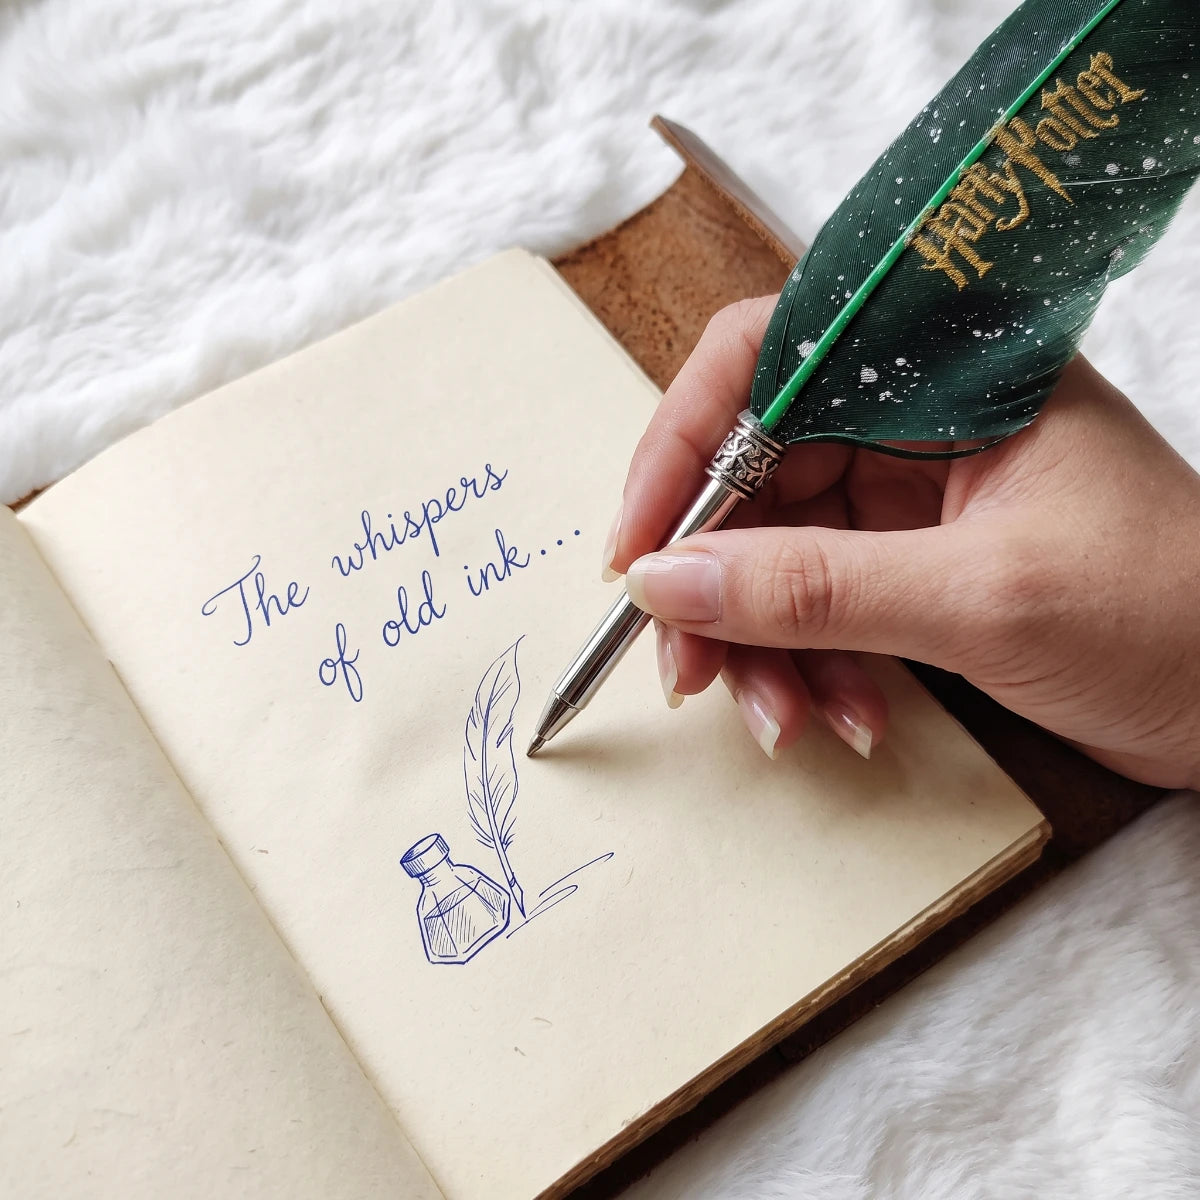 The whispers
of old ink...
Harry Potter